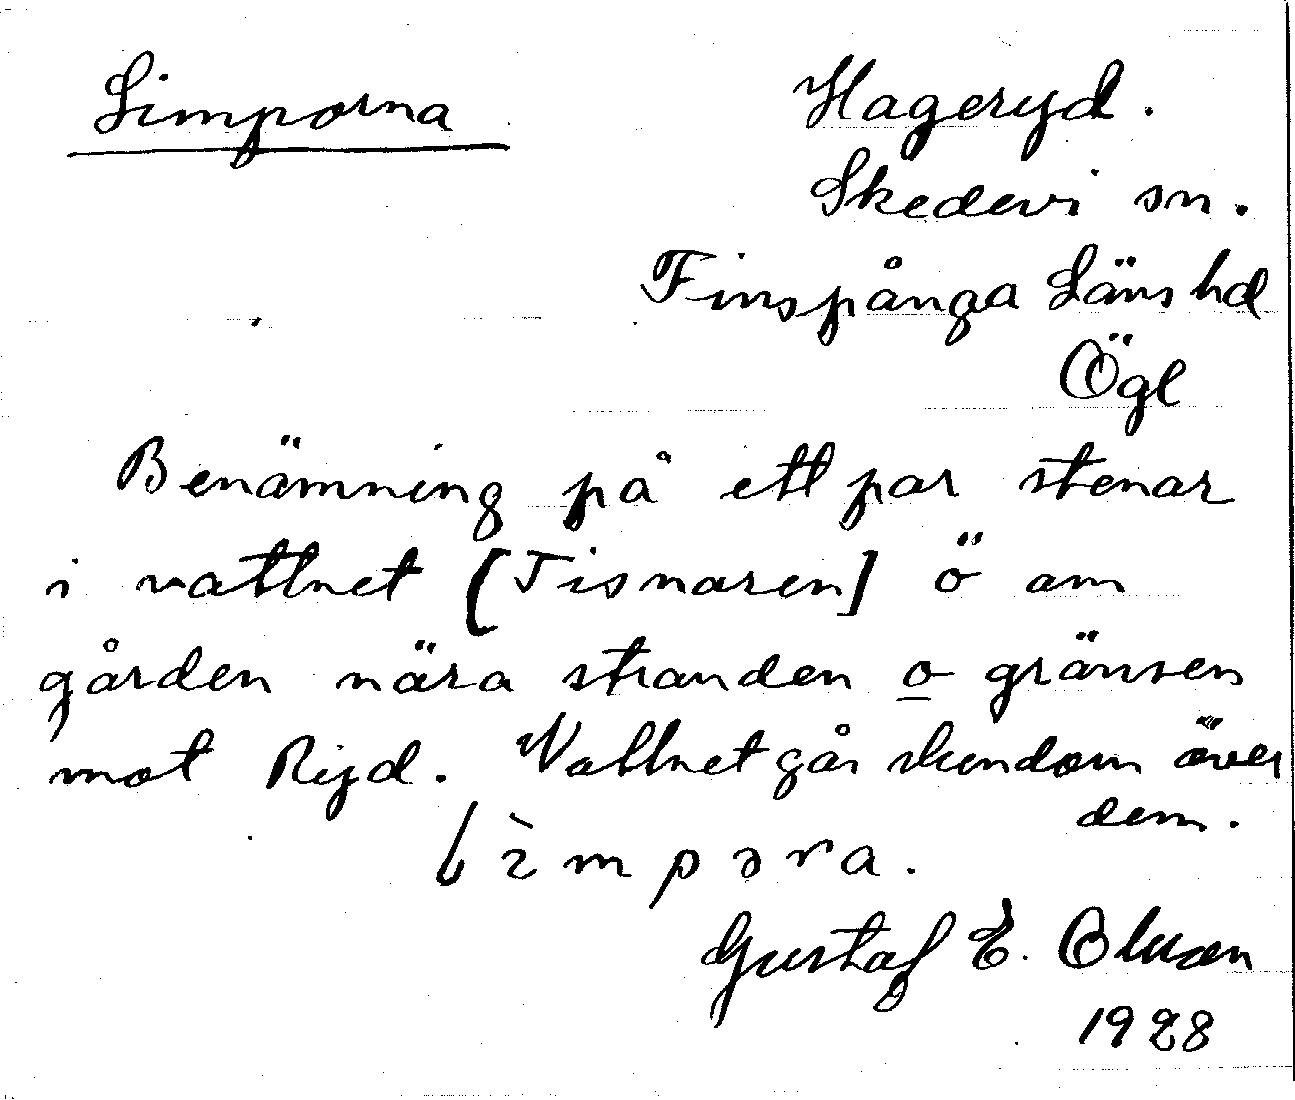 Simporna
Hageryd.
Skedevi sn.
Finspånga Läns hd
Ögl
Benämning på ett par stenar
i vattnet [Tisnaren] ö om
gården nära stranden o gränsen
mot Ryd. Vattnet går stundom över
dem.
Gustaf E. Olsson
1928